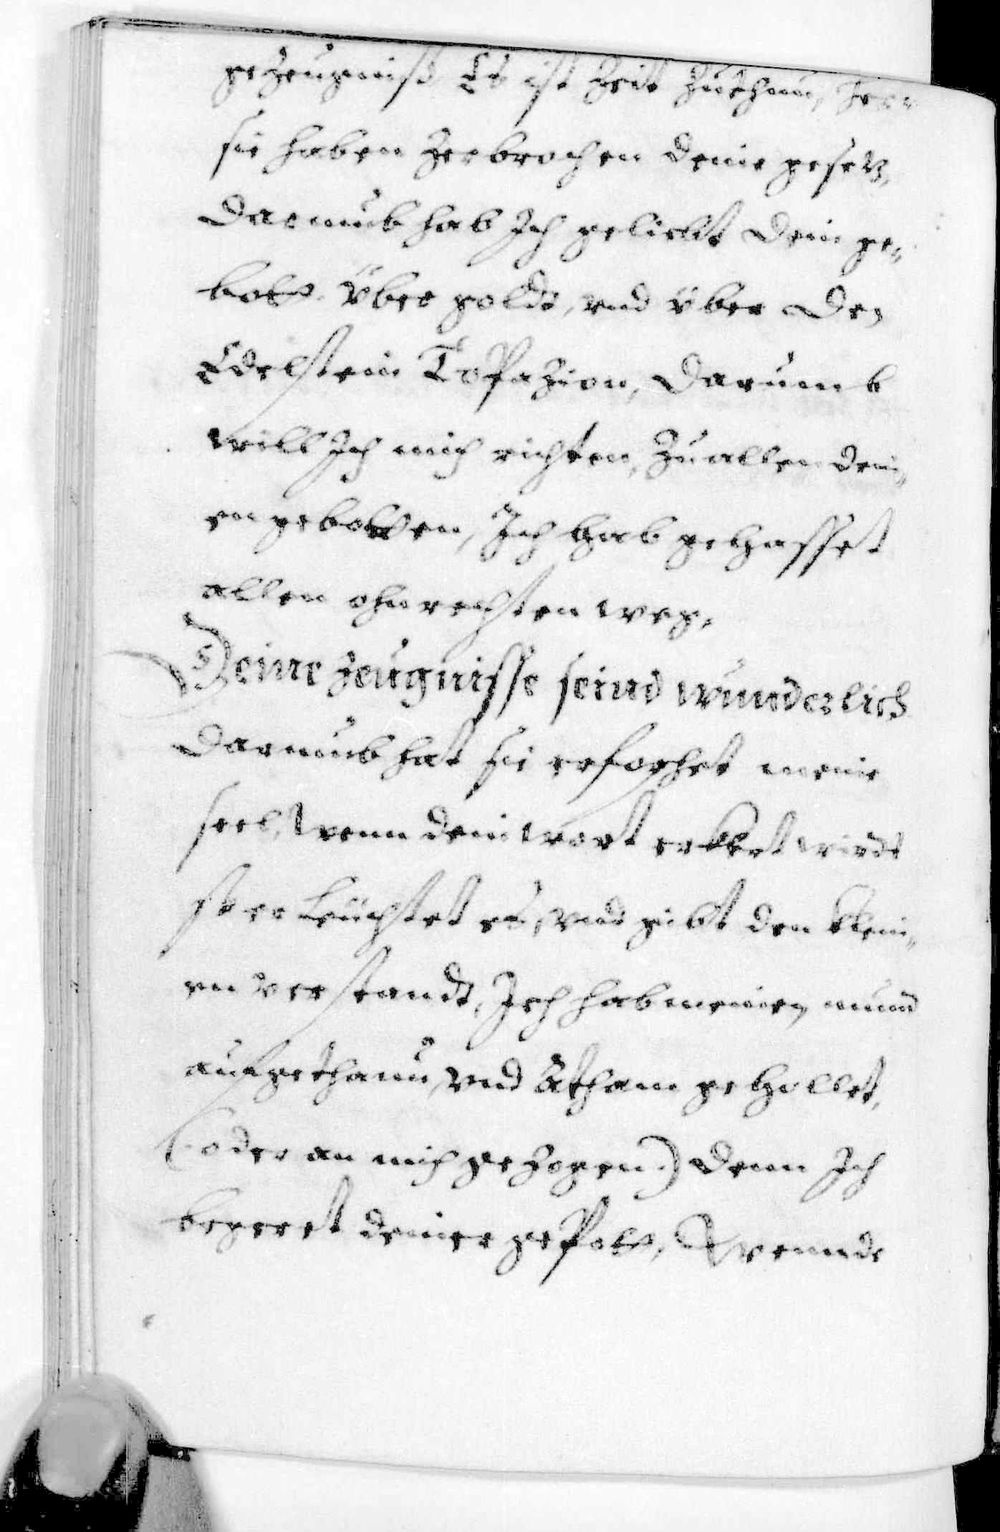 gezeugniß Es ist Zeit zuthun, Herr
sie haben zerbrochen deine gesetz,
Darumb hab Ich geliebt dein ge„
bott über goldt, vnd über den
Edelstein Topazion, Darumb
will Ich mich richten, zu allen dein„
en gebotten, Ich hab gehasset
allen ohnrechten weg,
Deine zeugnisse seind wunderlich
Darumb hat sie erforschet meine
seel, Wenn dein wort erklert wirdt
so erleüchtet es, vnd gibt den klein„
en verstandt, Ich hab meinen mund
aufgethann, vnd Atham gehollet,
(oder an mich gezogen) denn Ich
begeret deiner gepott, Wennde